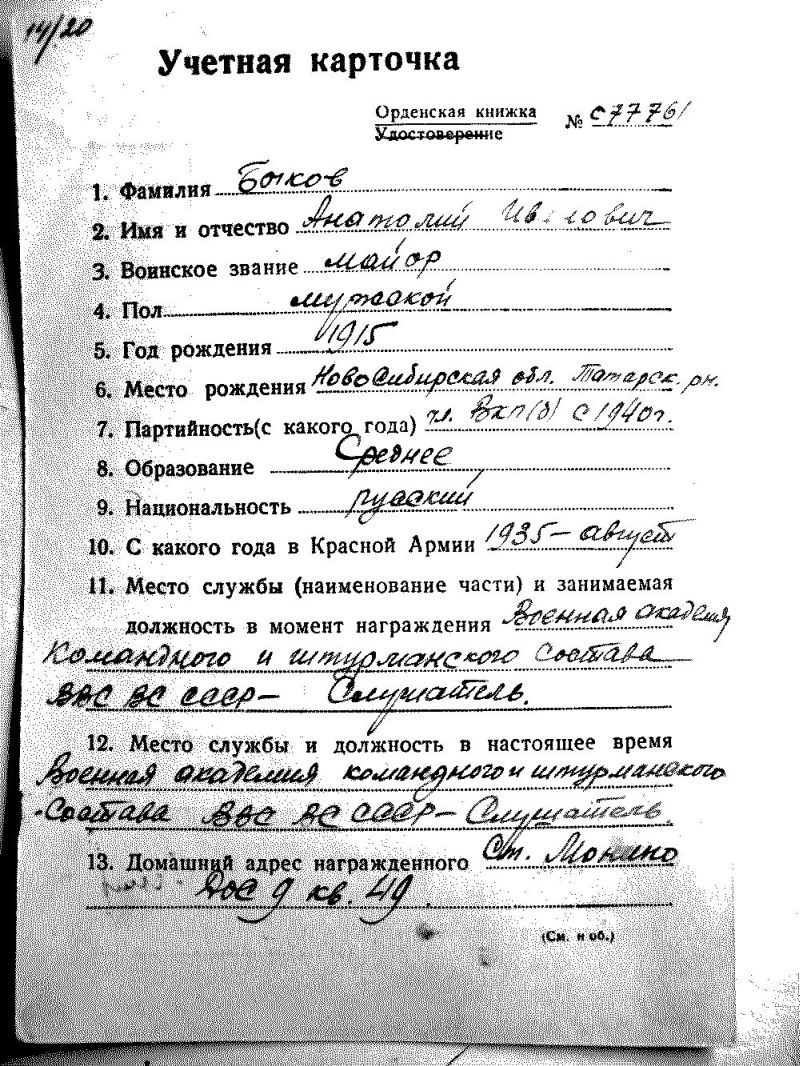 14/20
Учетная карточка
Орденская книжка
Удостоверение
№ С77761
1. Фамилия Быков
2. Имя и отчество Анатолий Иванович
3. Воинское звание майор
4. Пол мужской
5. Год рождения 1915
6. Место рождения Новосибирская обл. Татарск. рн.
7. Партийность(с какого года) чл. ВКП(б) с 1940г.
8. Образование Среднее
9. Национальность русский
10. С какого года в Красной Армии 1935 – август
11. Место службы (наименование части) и занимаемая
должность в момент награждения Военная академия
командного и штурманского состава
ВВС ВС СССР – Слушатель.
12. Место службы и должность в настоящее время
Военная академия командного и штурманского
состава ВВС ВС СССР – Слушатель.
13. Домашний адрес награжденного Ст. Монино
ДОС 9 кв. 49.
(См. н об.)